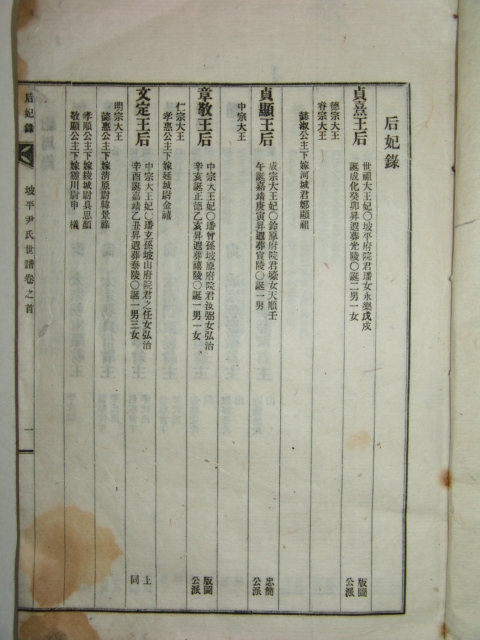 后妃錄
貞熹王后
世祖大王妃○坡平府院君璠女永樂戊戌
誕成化癸卯昇遐葬光陵○誕二男一女
版圖公派
德宗大王
睿宗大王
懿淑公主下嫁河城君鄭顯祖
貞顯王后
成宗大王妃○鈴原府院君壕女天順壬
午誕嘉靖庚寅昇遐葬宣陵○誕一男
忠簡公派
中宗大王
章敬王后
中宗大王妃○璠曾孫坡原府院君汝弼女弘治
辛亥誕正德乙亥昇遐葬禧陵○誕一男一女
版圖公派
仁宗大王
孝惠公主下嫁延城尉金禧
文定王后
中宗大王妃○璠玄孫坡山府院君之任女弘治
辛酉誕嘉靖乙丑昇遐葬泰陵○誕一男三女
上同
明宗大王
懿惠公主下嫁淸原尉韓景祿
孝順公主下嫁綾城尉具思顏
敬顯公主下嫁靈川尉申檥
后妃錄
坡平尹氏世譜卷之首
一